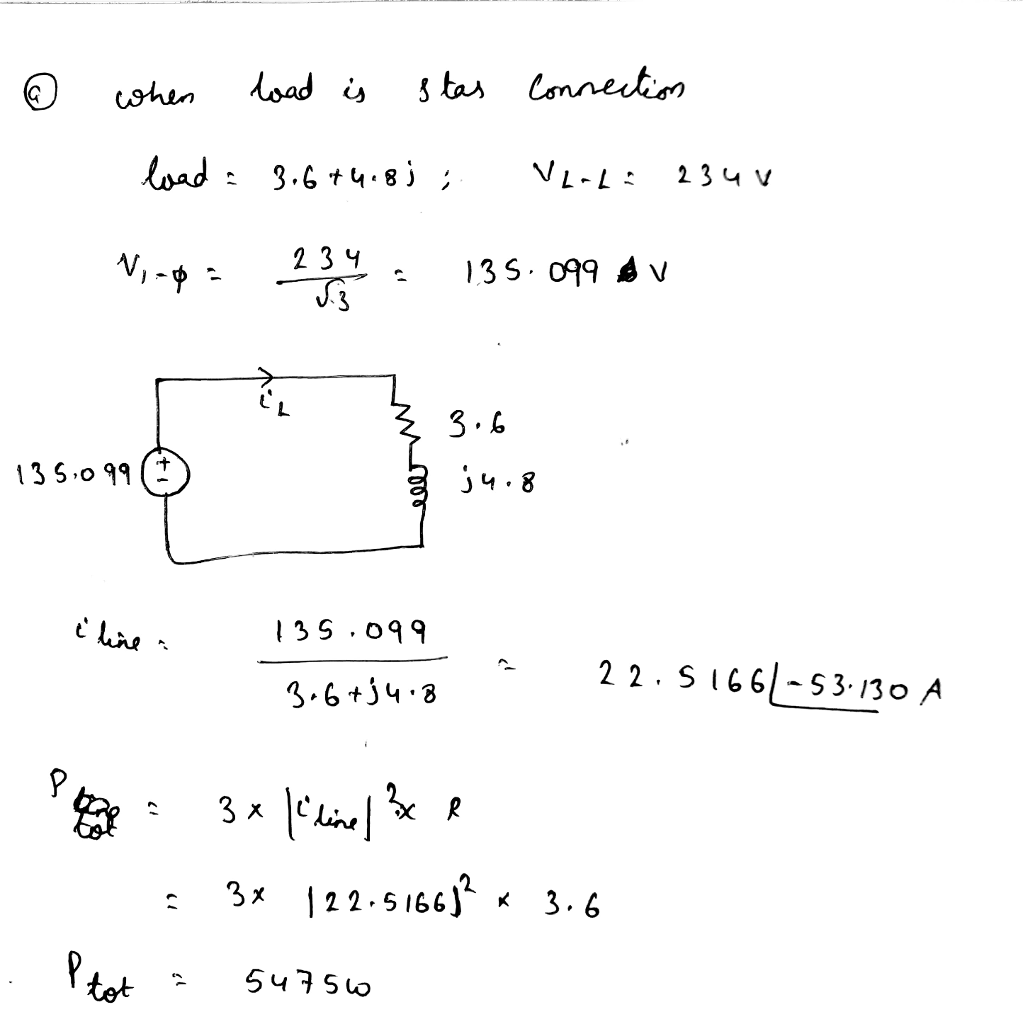 ⓐ when load is star Connection
load = 3.6 + 4.8j ; VL-L = 234 V
V1-φ = 234 / √3 = 135.099 V
iL
3.6
135.099 + -
j4.8
i line = 135.099 / 3.6 + j4.8 = 22.5166 ∠-53.130 A
P tot = 3 × |i line|² × R
= 3 × |22.5166|² × 3.6
P tot = 5475 W